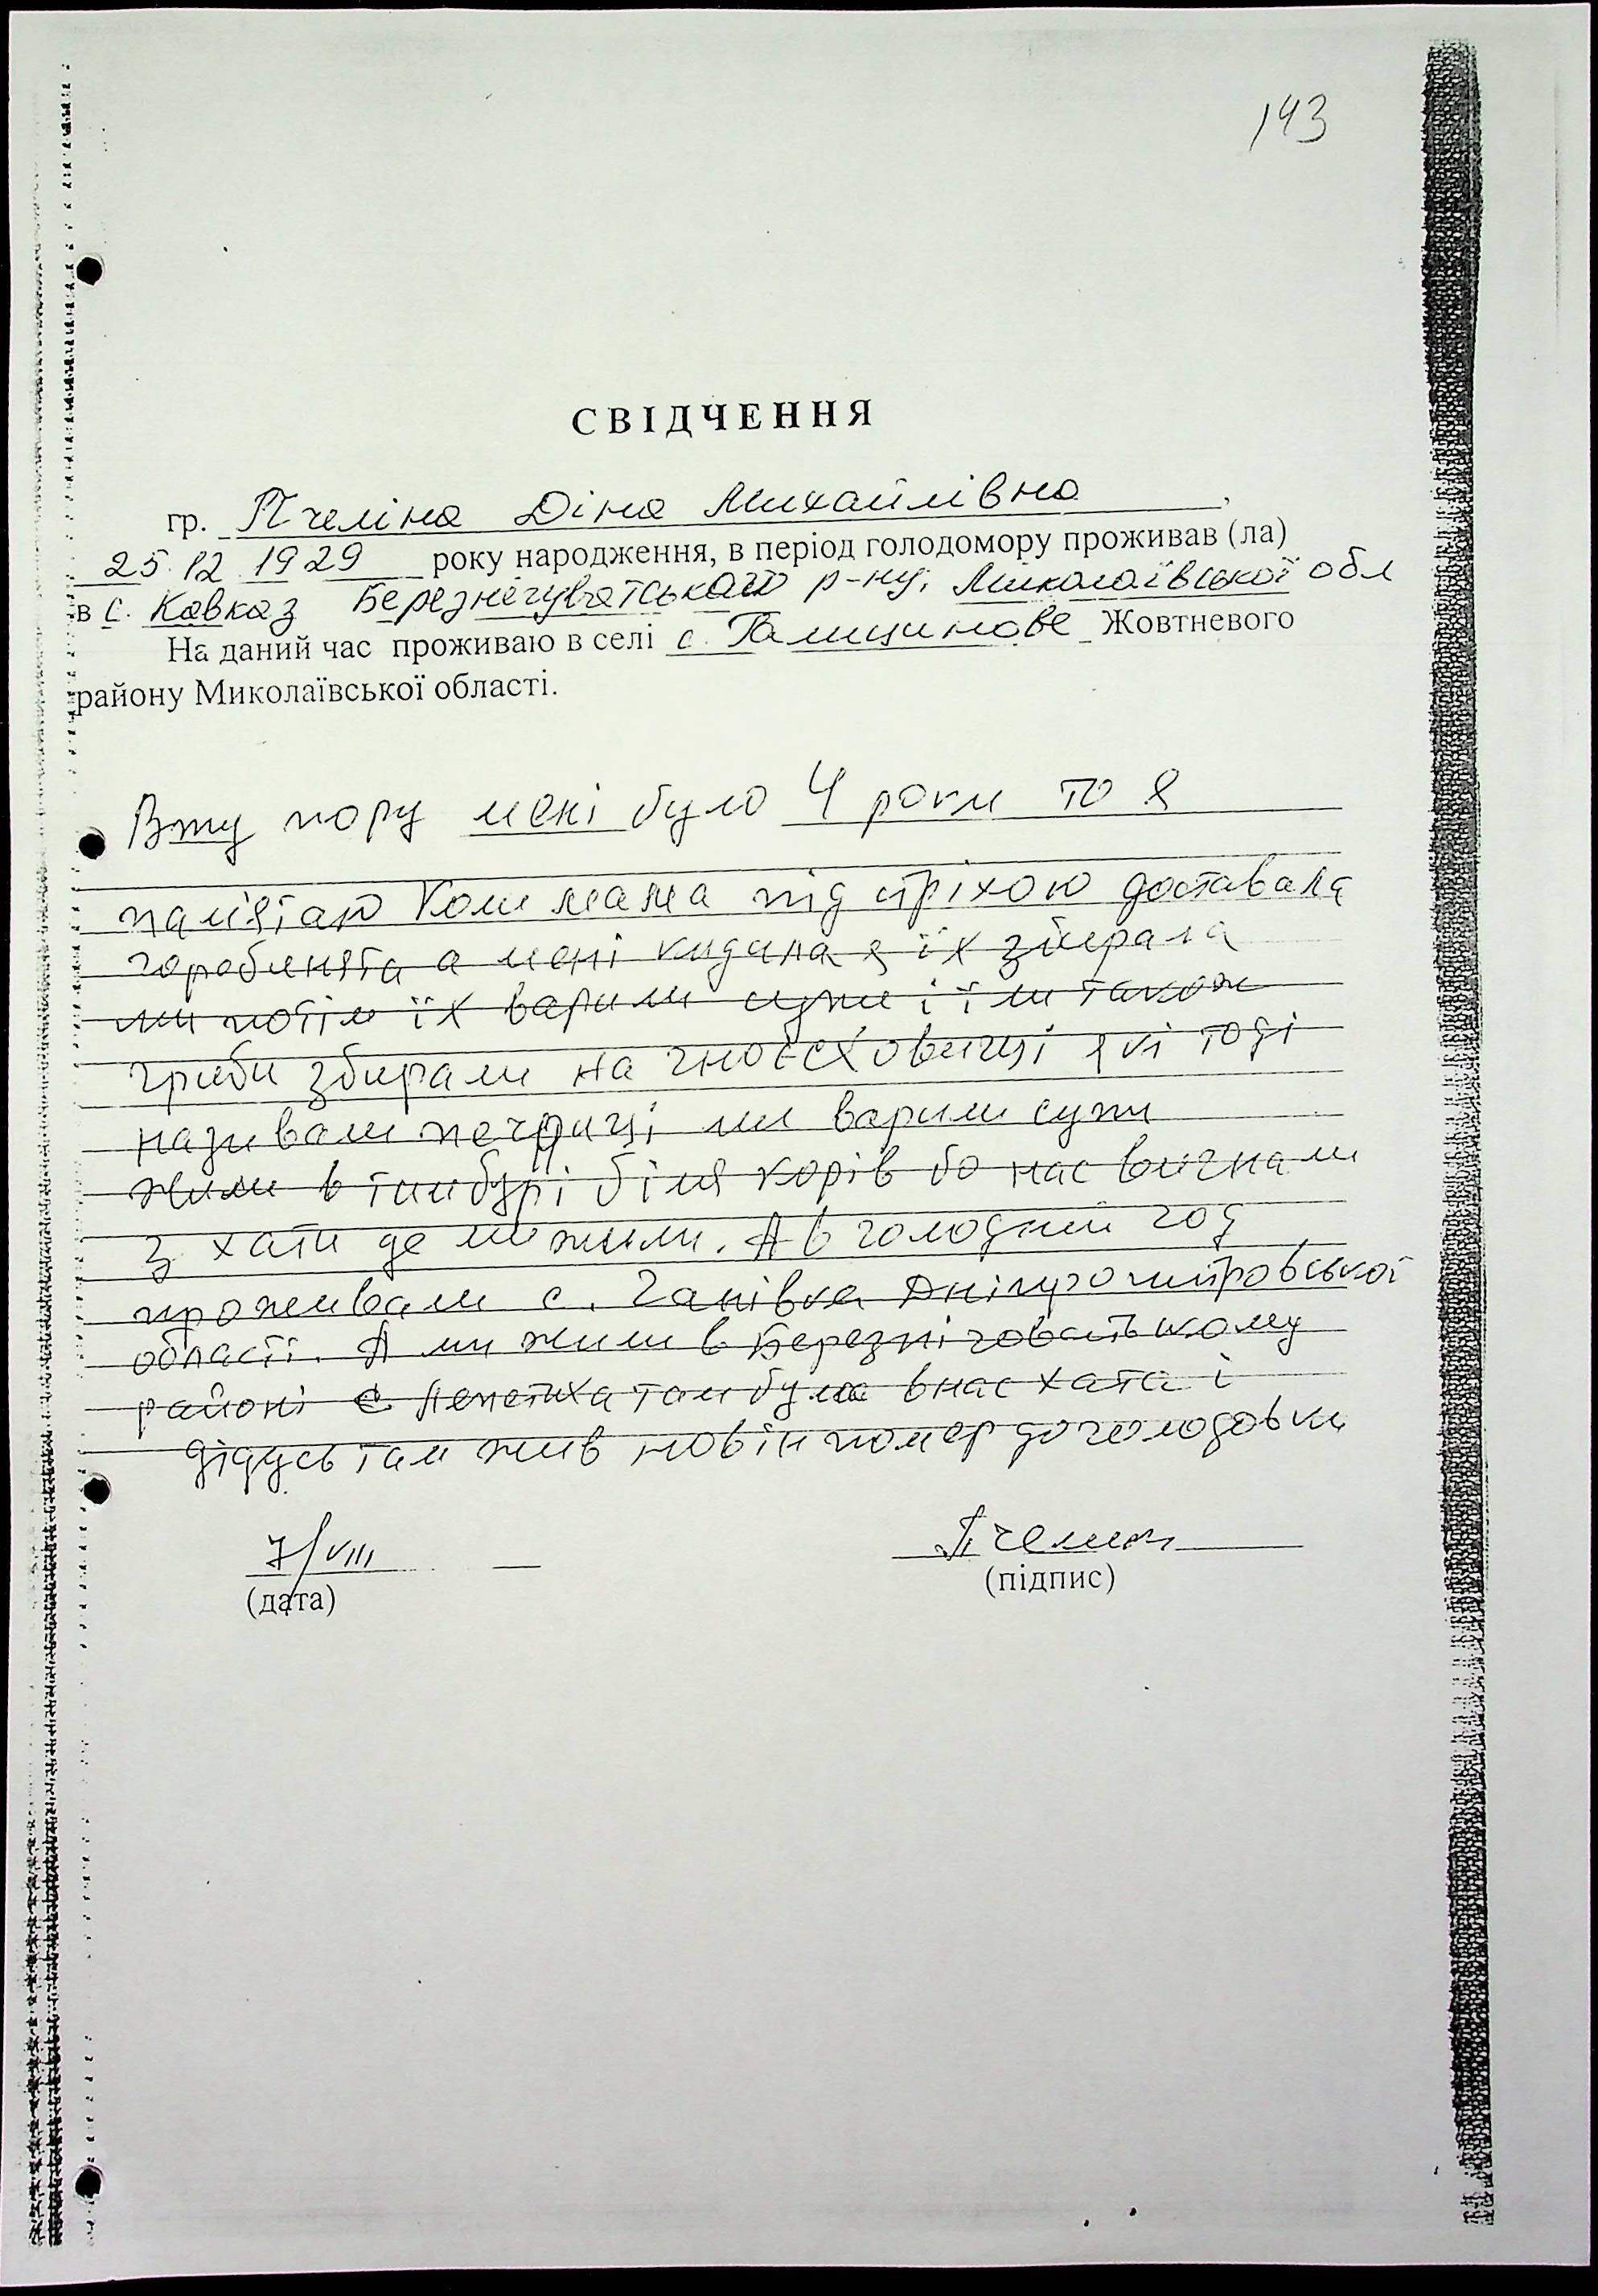 143
СВІДЧЕННЯ
гр. Пчеліна Діна Михайлівна,
25.12.1929 року народження, в період голодомору проживав (ла)
в с. Кавказ Березнегуватського р-ну, Миколаївської обл
На даний час проживаю в селі с. Галицинове Жовтневого
району Миколаївської області.
В ту пору мені було 4 роки то я
памʼятаю коли мама під стріхою доставала
горобенята а мені кидала я їх збирала
ми потім їх варили супи і їли також
гриби збирали на гноєсховищі які тоді
називали печериці ми варили супи
жили в тамбурі біля корів бо нас вигнали
з хати де ми жили. А в голодний год
проживали с. Ганівка Дніпропитровської
області. А ми жили в Березніговатському
районі с там була в нас хата і
дідусь там жив но він помер до голодовки
7/VIII
(дата)
Пчелин
(підпис)